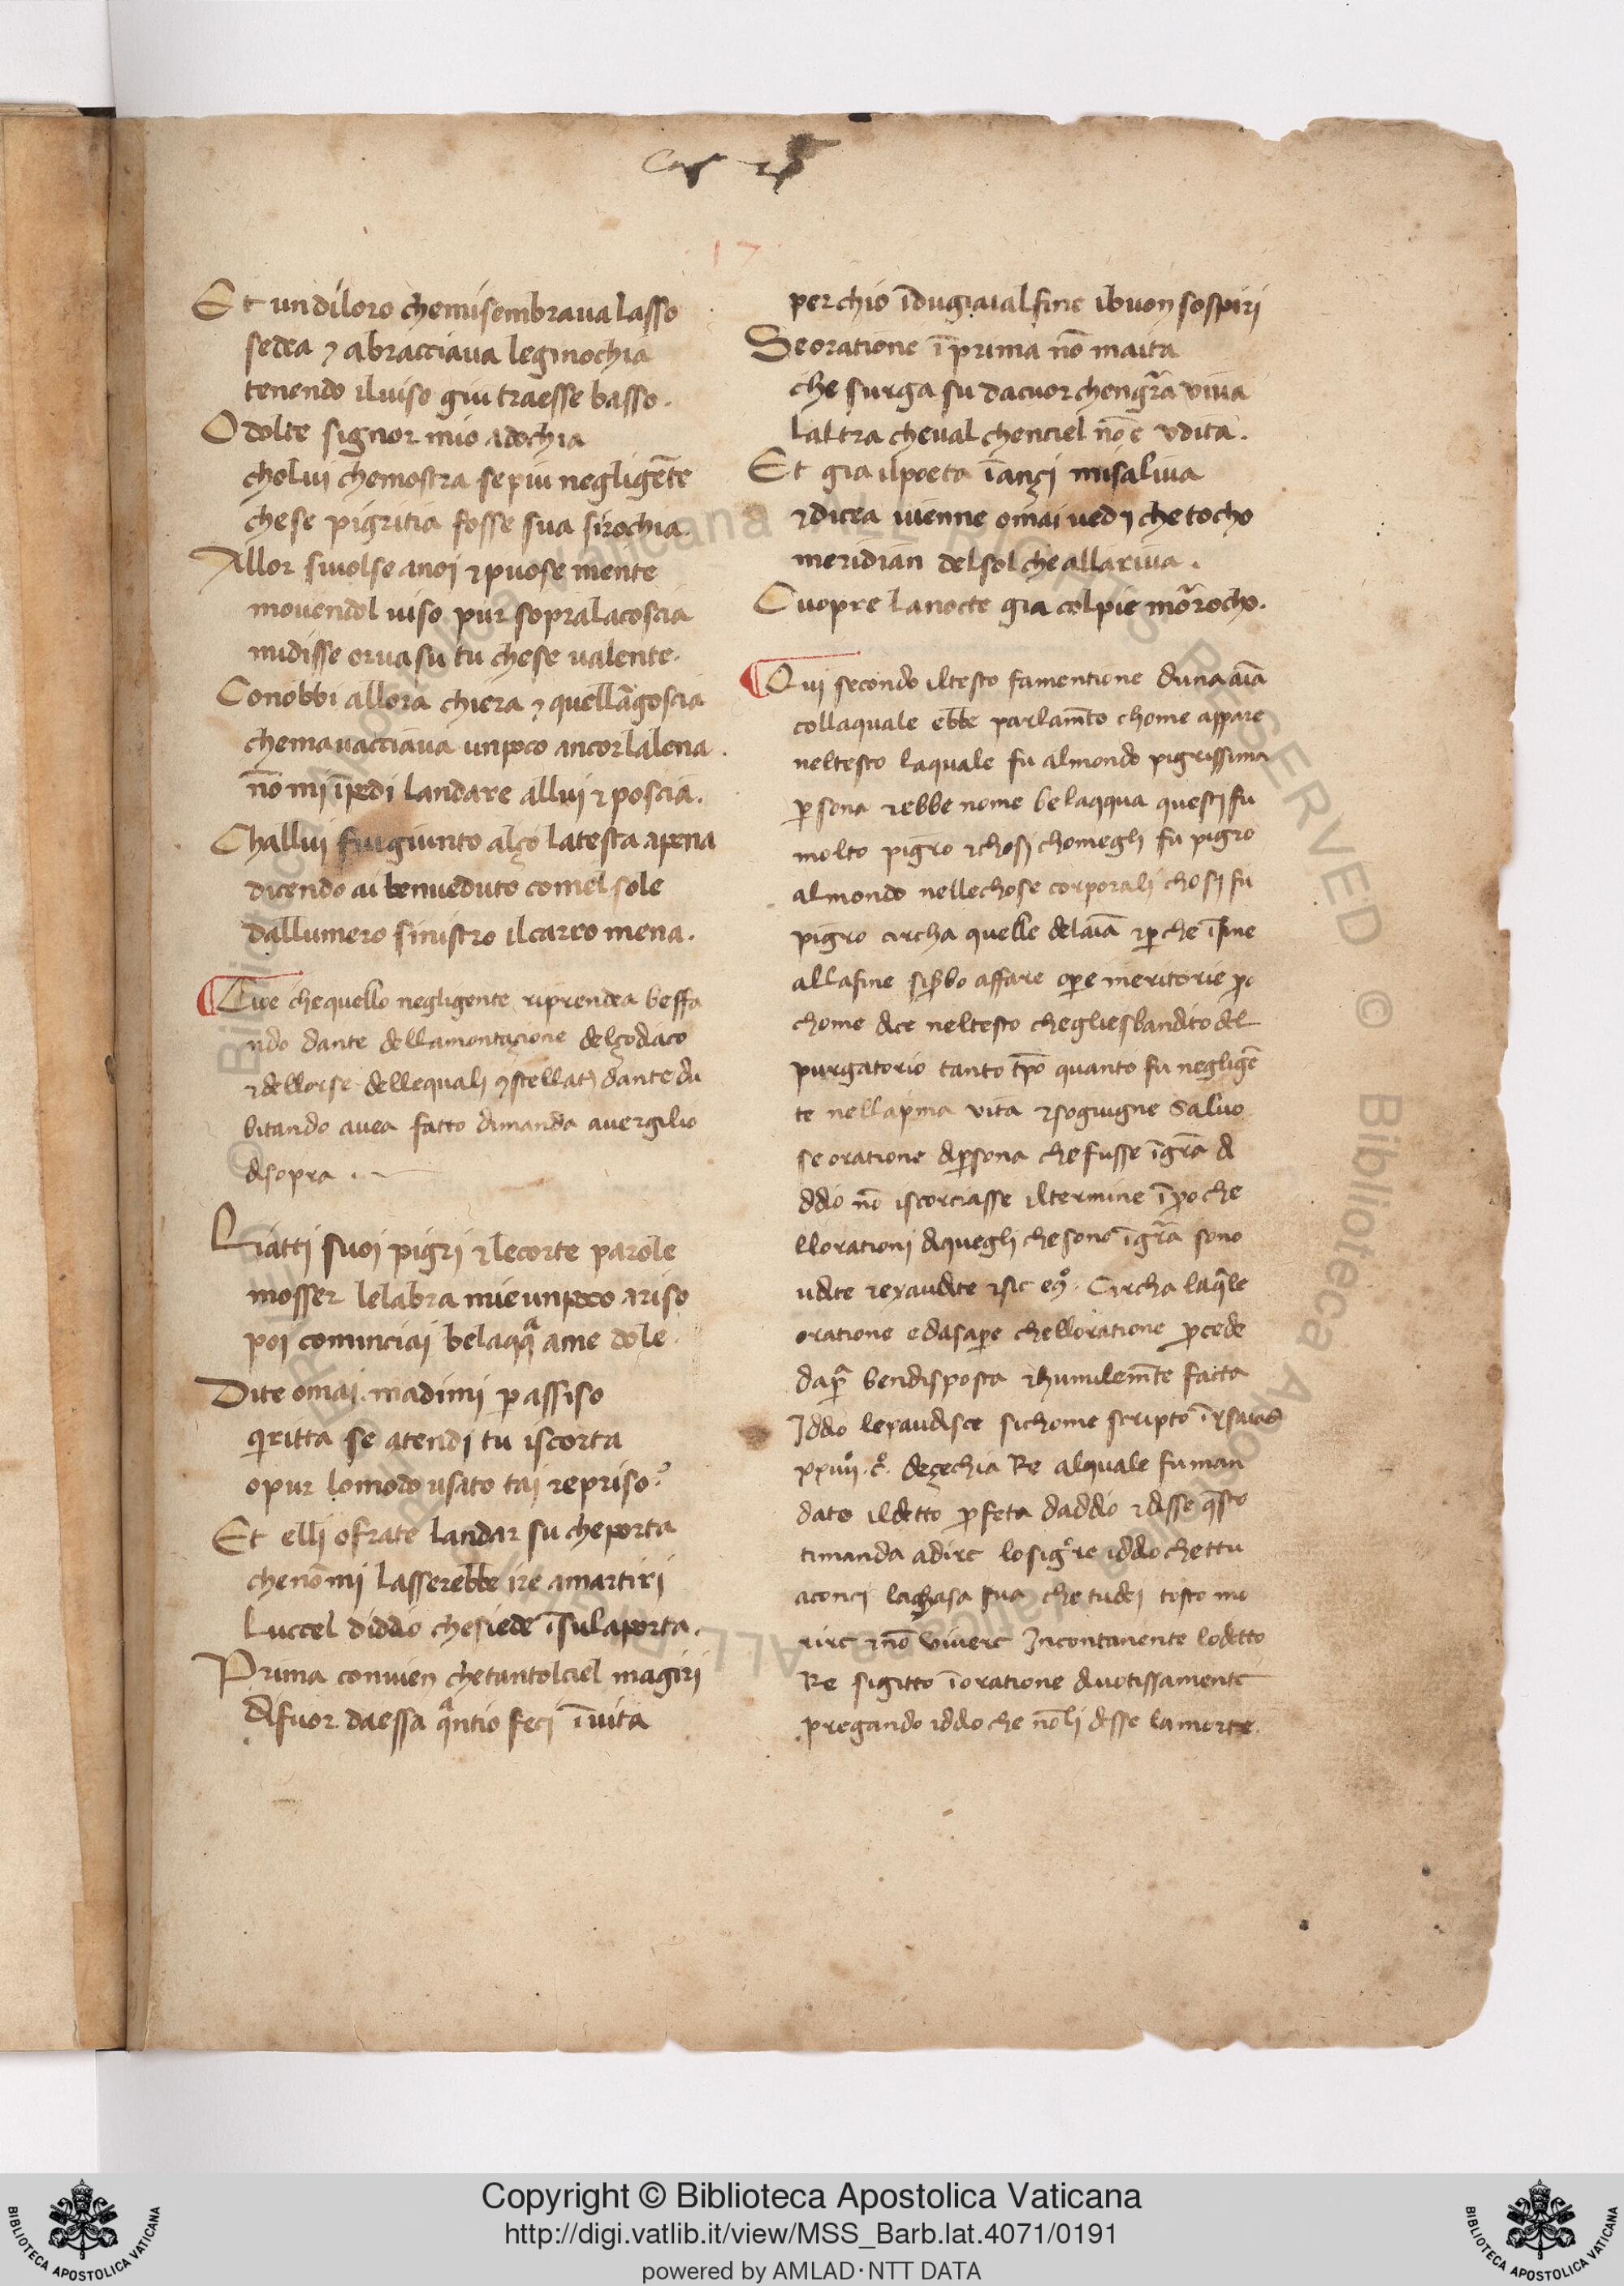 Et un diloro chemisembraua lasso
sedea ⁊ abracciaua leginochia
tenendo iluiso giu traesse basso.
O dolce signor mio adochia
cholui chemostra sepiu negligēte
chese pigritia fosse sua sirochia.
Allor siuolse anoi ⁊ puose mente
mouendol uiso pur sopralacoscia
midisse orua su tu chese ualente.
Conobbi allora chiera ⁊ quellāgoscia
chemauacciaua unpoco ancorlalena.
nō mi īpedi landare allui ⁊ poscia.
Challui fui giunto alço latesta apena
dicendo ai benueduto comel sole
dallumero sinistro ilcarro mena.
Dice chequello negligente riprendea beffa
ndo dante dellamontaçione delçodiaco
⁊ dellorse dellequali ꝯstellatj dante du
bitando auea fatto dimanda auergilio
disopra.
Liatti suoi pigri ⁊ lecorte parole
mosser lelabra mie unpoco ariso
poi cominciai belaqqᵃ ame dole.
Dite omai. madimi ꝑ assiso
qiritta se atendi tu iscorta
opur lomodo usato tai repriso?
Et elli ofrate landar su cheporta
chenōmi lasserebbe ire amartiri
luccel diddio chesiede īsulaporta.
Prima conuien chetantolciel magiri
difuor daessa qᵃntio feci īuita
perchio īdugiaialfine ibuon sospiri
Seoratione ī prima nō maita
che surga su dacuor chengrā viua
laltra cheual chenciel nō e vdita.
Et gia ilpoeta īançi misaliua
⁊ dicea uienne omai uedi che tocho
meridian delsol che allariua.
Cuopre lanocte gia colpie mōrocho.
Qui secondo iltesto famentione duna aīa
collaquale ebbe parlamēto chome appare
neltesto laquale fu almondo pigrissima
ꝑsona ⁊ ebbe nome belaqqua questi fu
molto pigro ⁊ chosi chomegli fu pigro
almondo nellechose corporali chosi fu
pigro circha quelle delaīa ⁊ ꝑche īsine
allafine siserbo affare opere meritorie ꝑo
chome dice neltesto chegliesbandito del
purgatorio tanto tꝑo quanto fu negligē
te nellapima vita ⁊ sogiugne saluo
se oratione diꝑsona chefusse īgrā di
ddio nō iscorciasse iltermine īꝑoche
llorationi diquegli chesono īgrā sono
udite ⁊ exaudite ⁊ sic eꝯᵒ. Circha laqᵃle
oratione edasapere chelloratione ꝓcede
dapᵃ bendisposta ⁊ humilemēte facta
Iddio lexaudisce sichome scripto ī ysaias
xxxuiij. cᵒ. deçechia Re alquale fu man
dato ildetto ꝓfeta daddio ⁊ disse qᵃsto
timanda adire losigᵒre iddio chettu
aconci lachasa tua che tudei tosto mo
rire ⁊ nō viuere Incontanente lodetto
Re sigitto ī oratione diuotissamente
pregando iddio che nōli desse lamorte.
Copyright © Biblioteca Apostolica Vaticana
http://digi.vatlib.it/view/MSS_Barb.lat.4071/0191
powered by AMLAD·NTT DATA
BIBLIOTECA APOSTOLICA VATICANA
BIBLIOTECA APOSTOLICA VATICANA